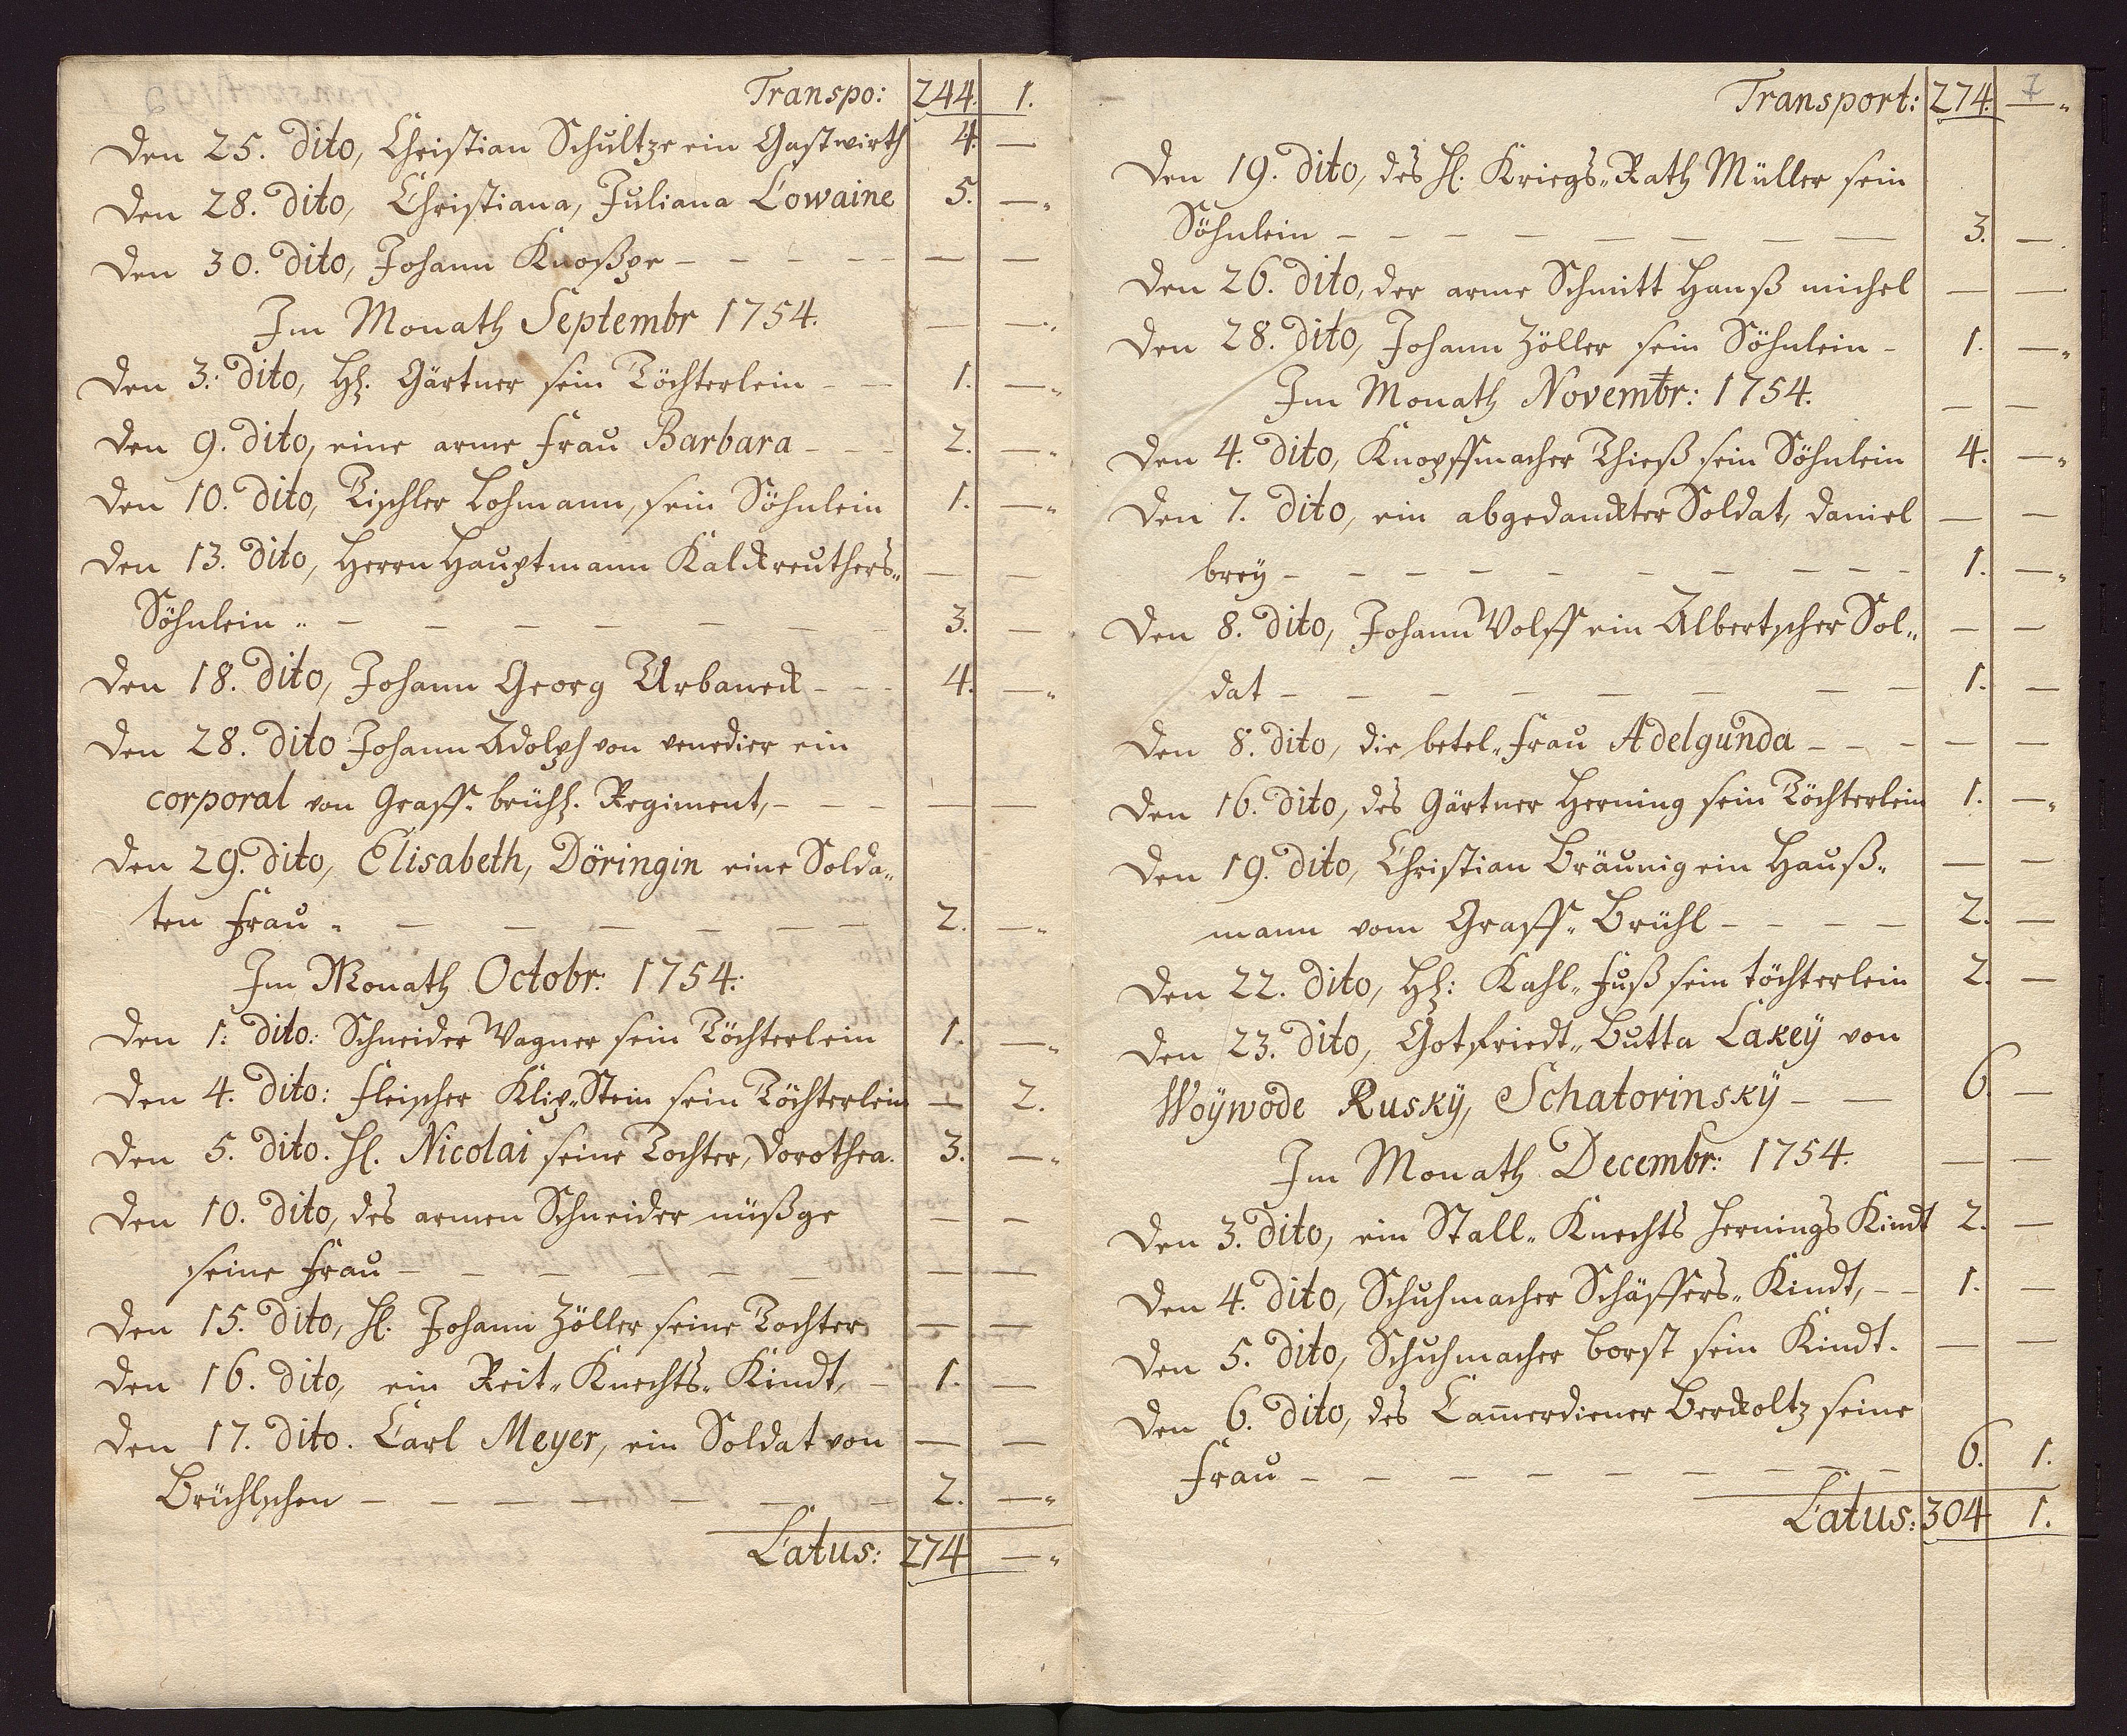 Transpo: 244. 1.
Den 25. dito, Christian Schultze ein Gastwirth 4. —
Den 28. dito, Christiana, Juliana Lowaine 5. —"
Den 30. dito, Johann Knoßpe — — — — — —
Im Monath Septembr 1754. — —"
Den 3: dito, Hh. Gärtner sein Töchterlein — — 1. —"
Den 9. dito, eine arme Frau Barbara — — — 2. —"
Den 10. dito, Tischler Lohmann, sein Söhnlein 1. —"
Den 13. dito, Herrn Hauptmann Kalckreuthers" — —
Söhnlein " — — — — — — — 3. —
Den 18. dito, Johann Georg Urbaneck — — — 4. —"
Den 28. dito Johann Adolph von venedier ein
corporal von Graff. brühl. Regiment, — — — — —
Den 29. dito, Elisabeth, Döringin eine Solda"
ten Frau " — — — — — — 2. —"
Im Monath Octobr: 1754:
Den 1: dito: Schneider Wagner sein Töchterlein 1. —"
Den 4. dito: Fleischer Klip"Stein sein Töchterlein — 2.
Den 5. dito. H. Nicolai seine Tochter, Dorothea. 3. —"
Den 10. dito, des armen Schneider müßge — —
seine Frau — — — — — — — — —
Den 15. dito, H. Johann Zöller seine Tochter — —
Den 16. dito, ein Reit"Knechts"Kindt, — 1. —
Den 17. dito. Carl Meyer, ein Soldat von — —
Brühlschen — — — — — — — 2. —"
Latus: 274 —"
7
Transport: 274. —"
Den 19. dito, des H. Kriegs"Rath Müller sein
Söhnlein — — — — — — — — 3. —
Den 26. dito, der arme Schmitt Hanß michel — —
Den 28. dito, Johann Zöller sein Söhnlein — 1. —"
Im Monath Novembr: 1754. — —
Den 4. dito, Knopffmacher Thieß sein Söhnlein 4. —"
Den 7. dito, ein abgedanckter Soldat, Daniel — —
brey — — — — — — — — — 1. —"
Den 8. dito, Johann Wolff ein Albertscher Sol" — —
dat — — — — — — — — 1. —
Den 8. dito, die betel"Frau Adelgunda — — — — —
Den 16. dito, des Gärtner Herning sein Töchterlein 1. —"
Den 19. dito, Christian Bräunig ein Hauß" — —
mann vom Graff" Brühl — — — — 2. —
Den 22. dito, Hh: Kahl"Fuß sein töchterlein 2. —
Den 23. dito, Gotfriedt"Butta Lakeÿ von
Woÿwode Ruskÿ, Schatorinskÿ — — 6. —
Im Monath Decembr: 1754. — —
Den 3. dito, ein Stall"Knechts Hernings Kindt 2. —
Den 4. dito, Schuhmacher Schäffers"Kindt, — — 1. —
Den 5. dito, Schuhmacher borst sein Kindt. — —
Den 6. dito, des Cam̅erdiener Berckoltz seine
Frau — — — — — — — — 6. 1.
Latus: 304 1.